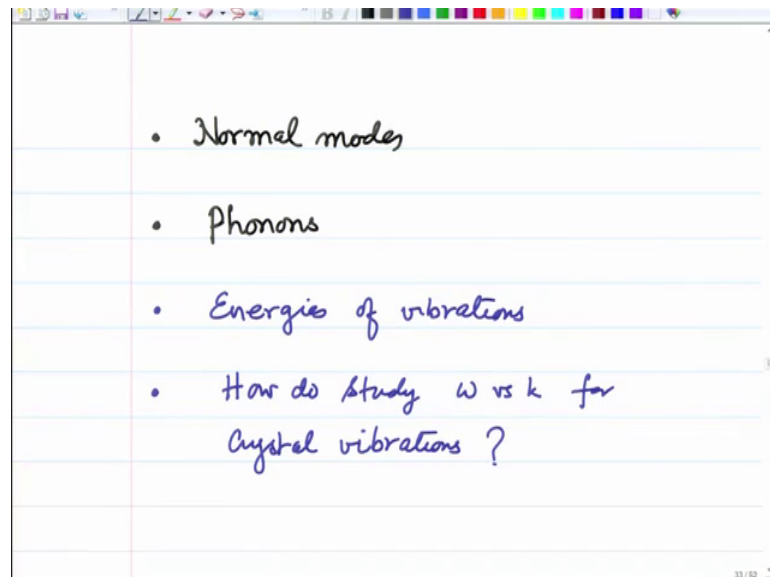 • Normal modes
• Phonons
• Energies of vibrations
• How do study ω vs k for
crystal vibrations ?
33/52